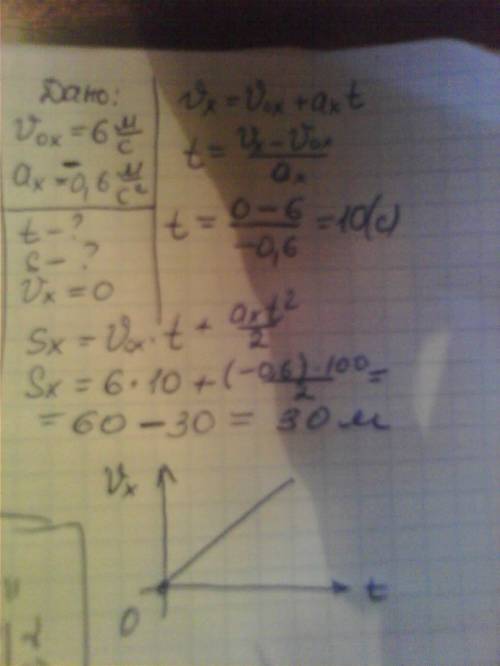 Дано:
V₀ₓ = 6 м/с
aₓ = -0,6 м/с²
t - ?
s - ?
Vₓ = 0
Vₓ = V₀ₓ + aₓt
t = (Vₓ - V₀ₓ)/aₓ
t = (0 - 6)/(-0,6) = 10(с)
Sₓ = V₀ₓ · t + aₓt²/2
Sₓ = 6 · 10 + (-0,6) · 100/2 =
= 60 - 30 = 30 м
Vₓ
0
t